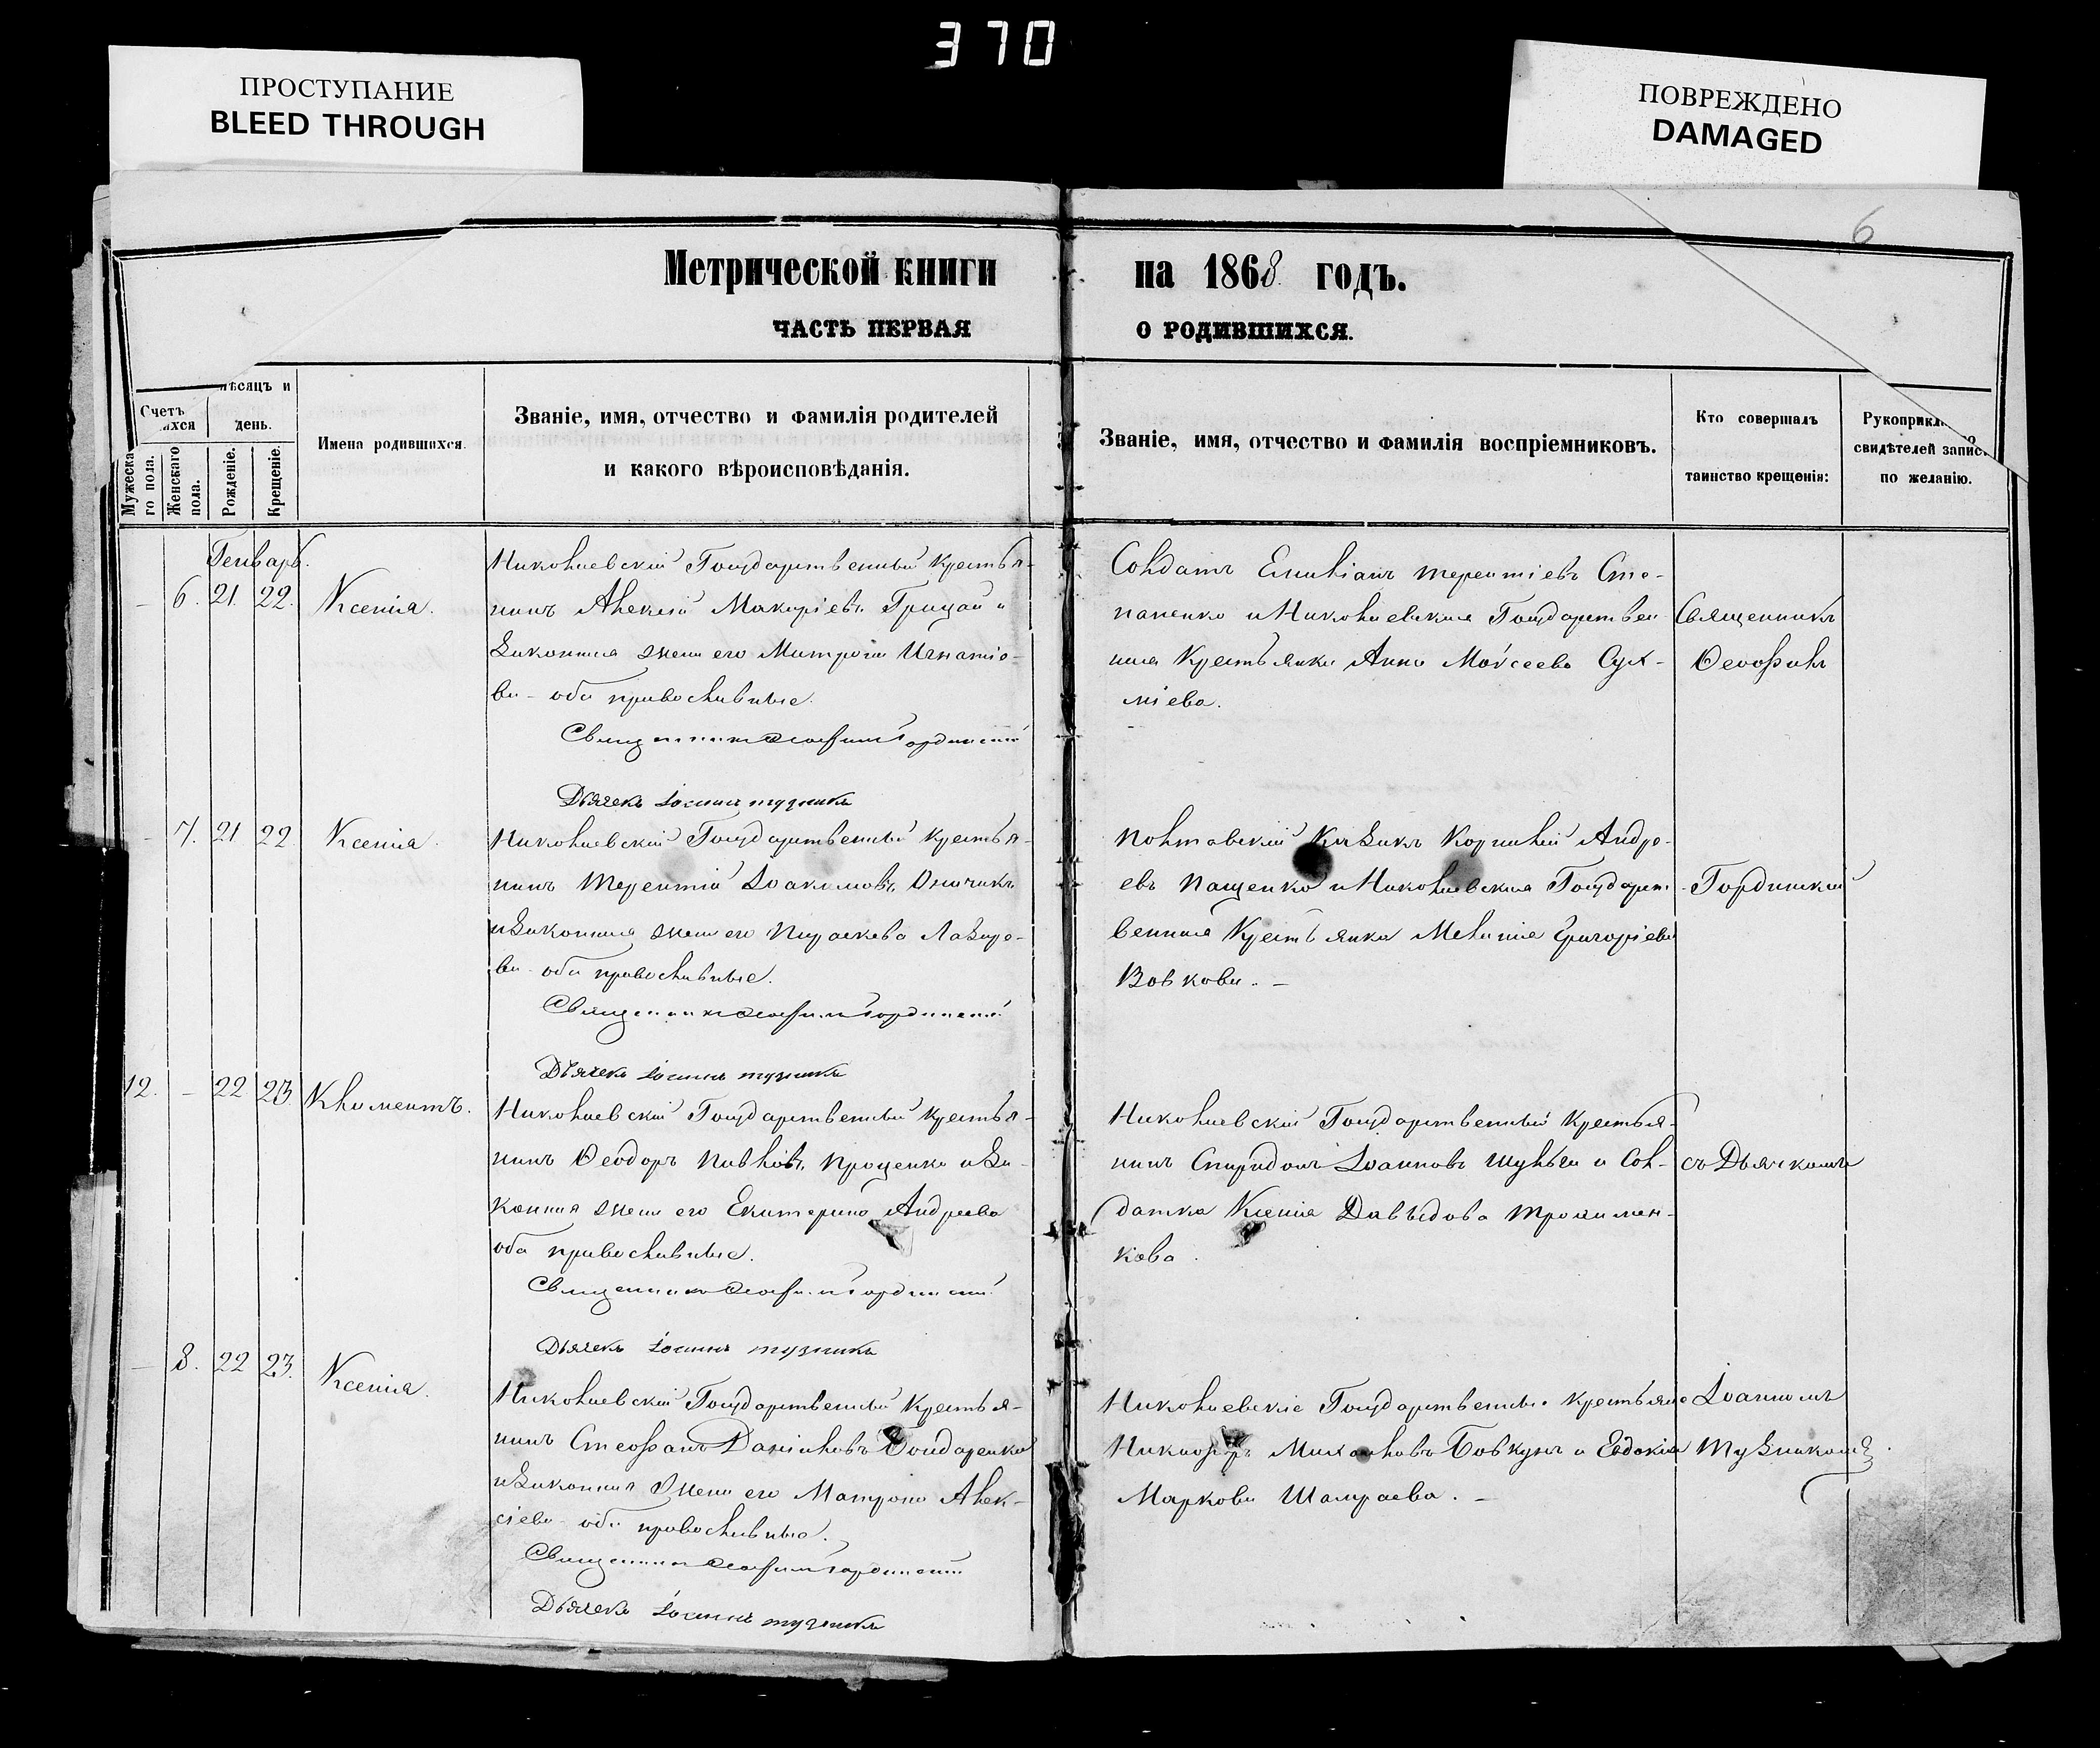 370
ПРОСТУПАНИЕ
BLEED THROUGH
ПОВРЕЖДЕНО
DAMAGED
6
Метрической книги на 1868 годъ.
ЧАСТЬ ПЕРВАЯ О РОДИВШИХСЯ.
Счетъ
мѣсяцъ и
день.
Мужеска
го пола.
Женскаго
пола.
Рожденіе.
Крещеніе.
Имена родившихся.
Званіе, имя, отчество и фамилія родителей
и какого вѣроисповѣданія.
Званіе, имя, отчество и фамилія воспріемниковъ.
Кто совершалъ
таинство крещенія:
свидѣтелей запис
по желанію.
Генварь.
– 6. 21. 22. Ксенія.
Николаевскій Государственный Кресть­я-
нинъ Алексій Макаріевъ Грицай и
Законная жена его Матрона Игнатіе-
ва – оба православные.
Священникъ Ѳеофилъ Гординскій
Дьячекъ Іоаннъ Тузникъ
Солдатъ Емиліанъ Терентіевъ Сте-
паненко и Николаевская Государствен
ная Крестьянка Анна Моѵсеева Сух-
міева.
Священникъ
Ѳеофилъ
– 7. 21 22 Ксенія.
Николаевскій Государственный Крестья-
нинъ Терентій Іоакимовъ
и Законная жена его Параскева Лазаре-
ва – оба православные.
Священникъ Ѳеофилъ Гординскій
Дьячекъ Іоаннъ Тузникъ
Полтавскій Казакъ Корнилій Андре-
евъ Пащенко и Николаевская Государст-
венная Крестьянка Меланія Григоріева
Вовкова. –
Гординскій
12. – 22 23. Климентъ.
Николаевскій Государственный Крестья-
нинъ Ѳеодоръ Павловъ Проценко и За-
конная жена его Екатерина Андреева
оба православные.
Священникъ Ѳеофилъ Гординскій
Дьячекъ Іоаннъ Тузникъ
Николаевскій Государственный Крестья-
нинъ Спиридонъ Іоанновъ Шульга и Сол-
датка Ксенія Давыдова Трохимен-
кова.
съ Дьячкомъ
– 8. 22 23. Ксенія.
Николаевскій Государственный Крестья-
нинъ Стефанъ Даніиловъ Бондаренко
и Законная жена его Матрона Алек-
сіева – оба православные.
Священникъ Ѳеофилъ Гординскій
Дьячекъ Іоаннъ Тузникъ
Николаевскіе Государственные Крестьяне
Никифоръ Михайловъ Бовкунъ и Евдокія
Маркова Шамраева. –
Іоанномъ
Тузникомъ.